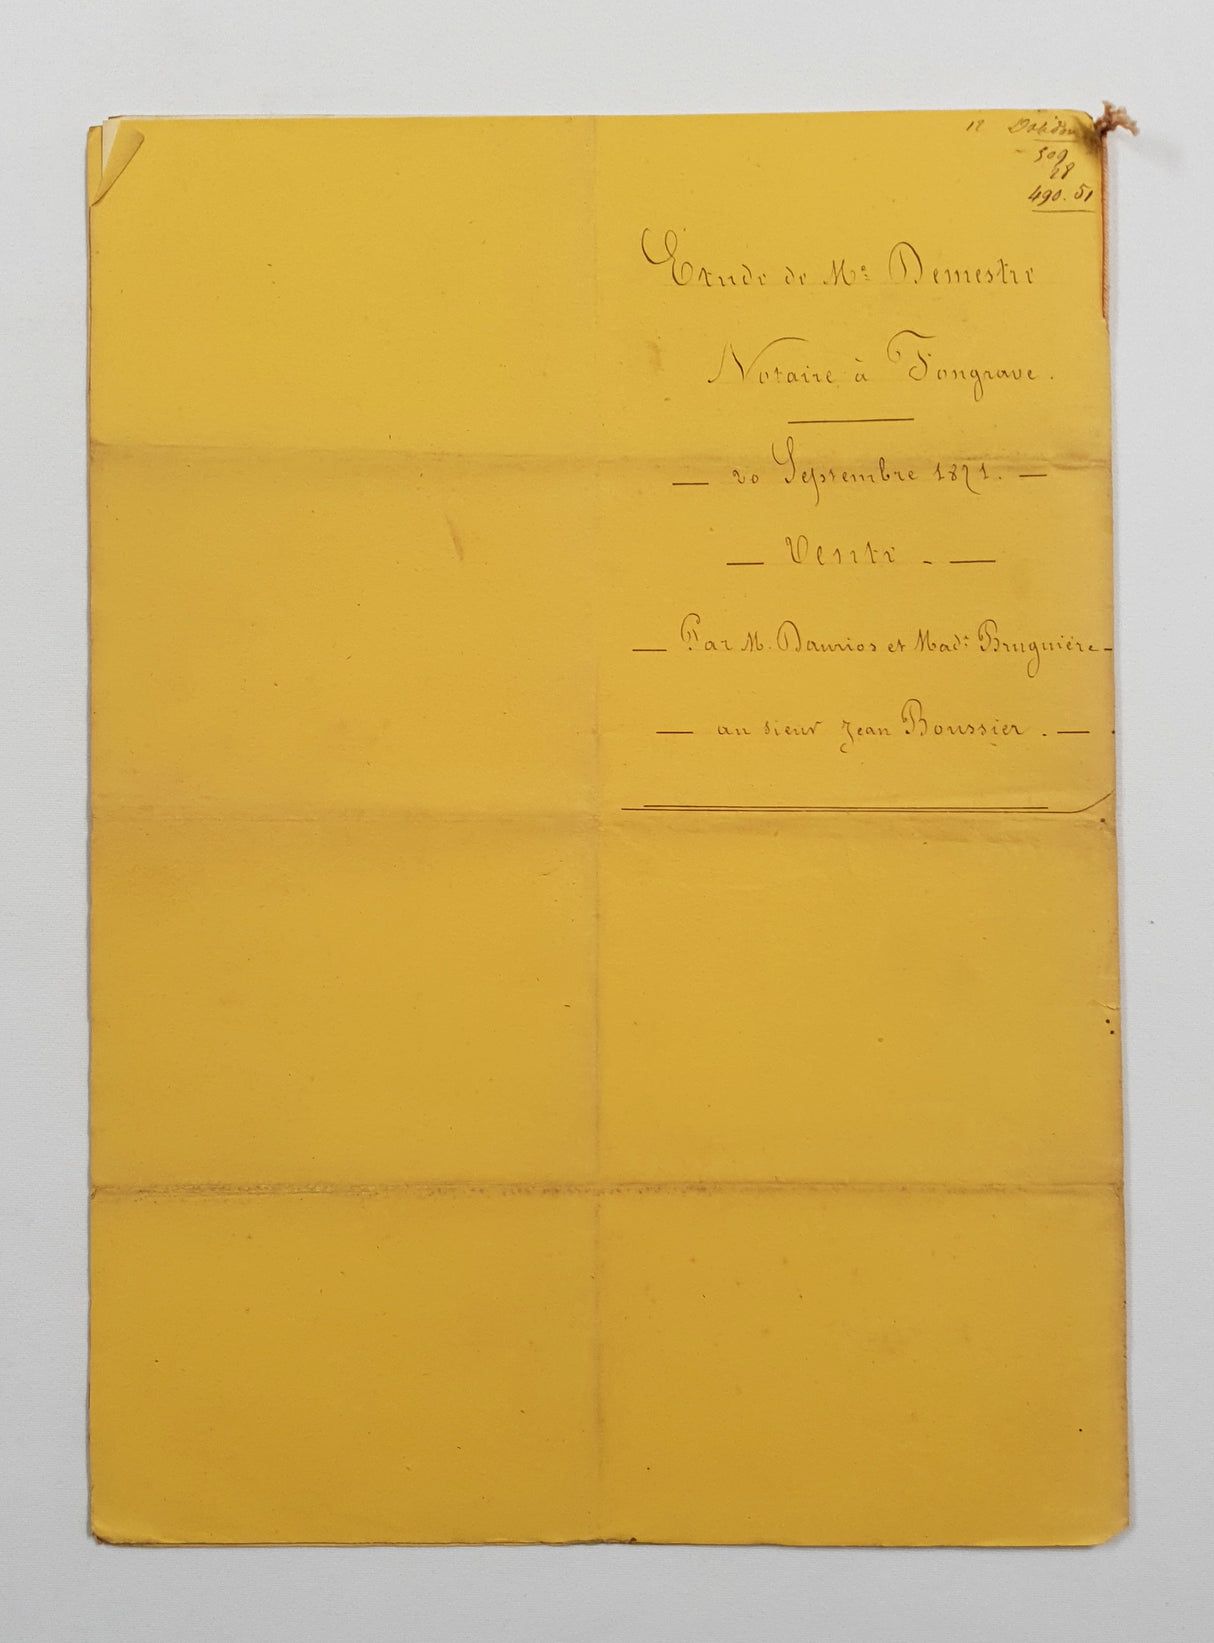 12
509
28
490. 51
Etude de Me Demestre
Notaire à Fongrave.
— 20 Septembre 1871. —
— Vente . —
— Par M. Daurios et Made Bruguière —
— au sieur Jean Boussier . —